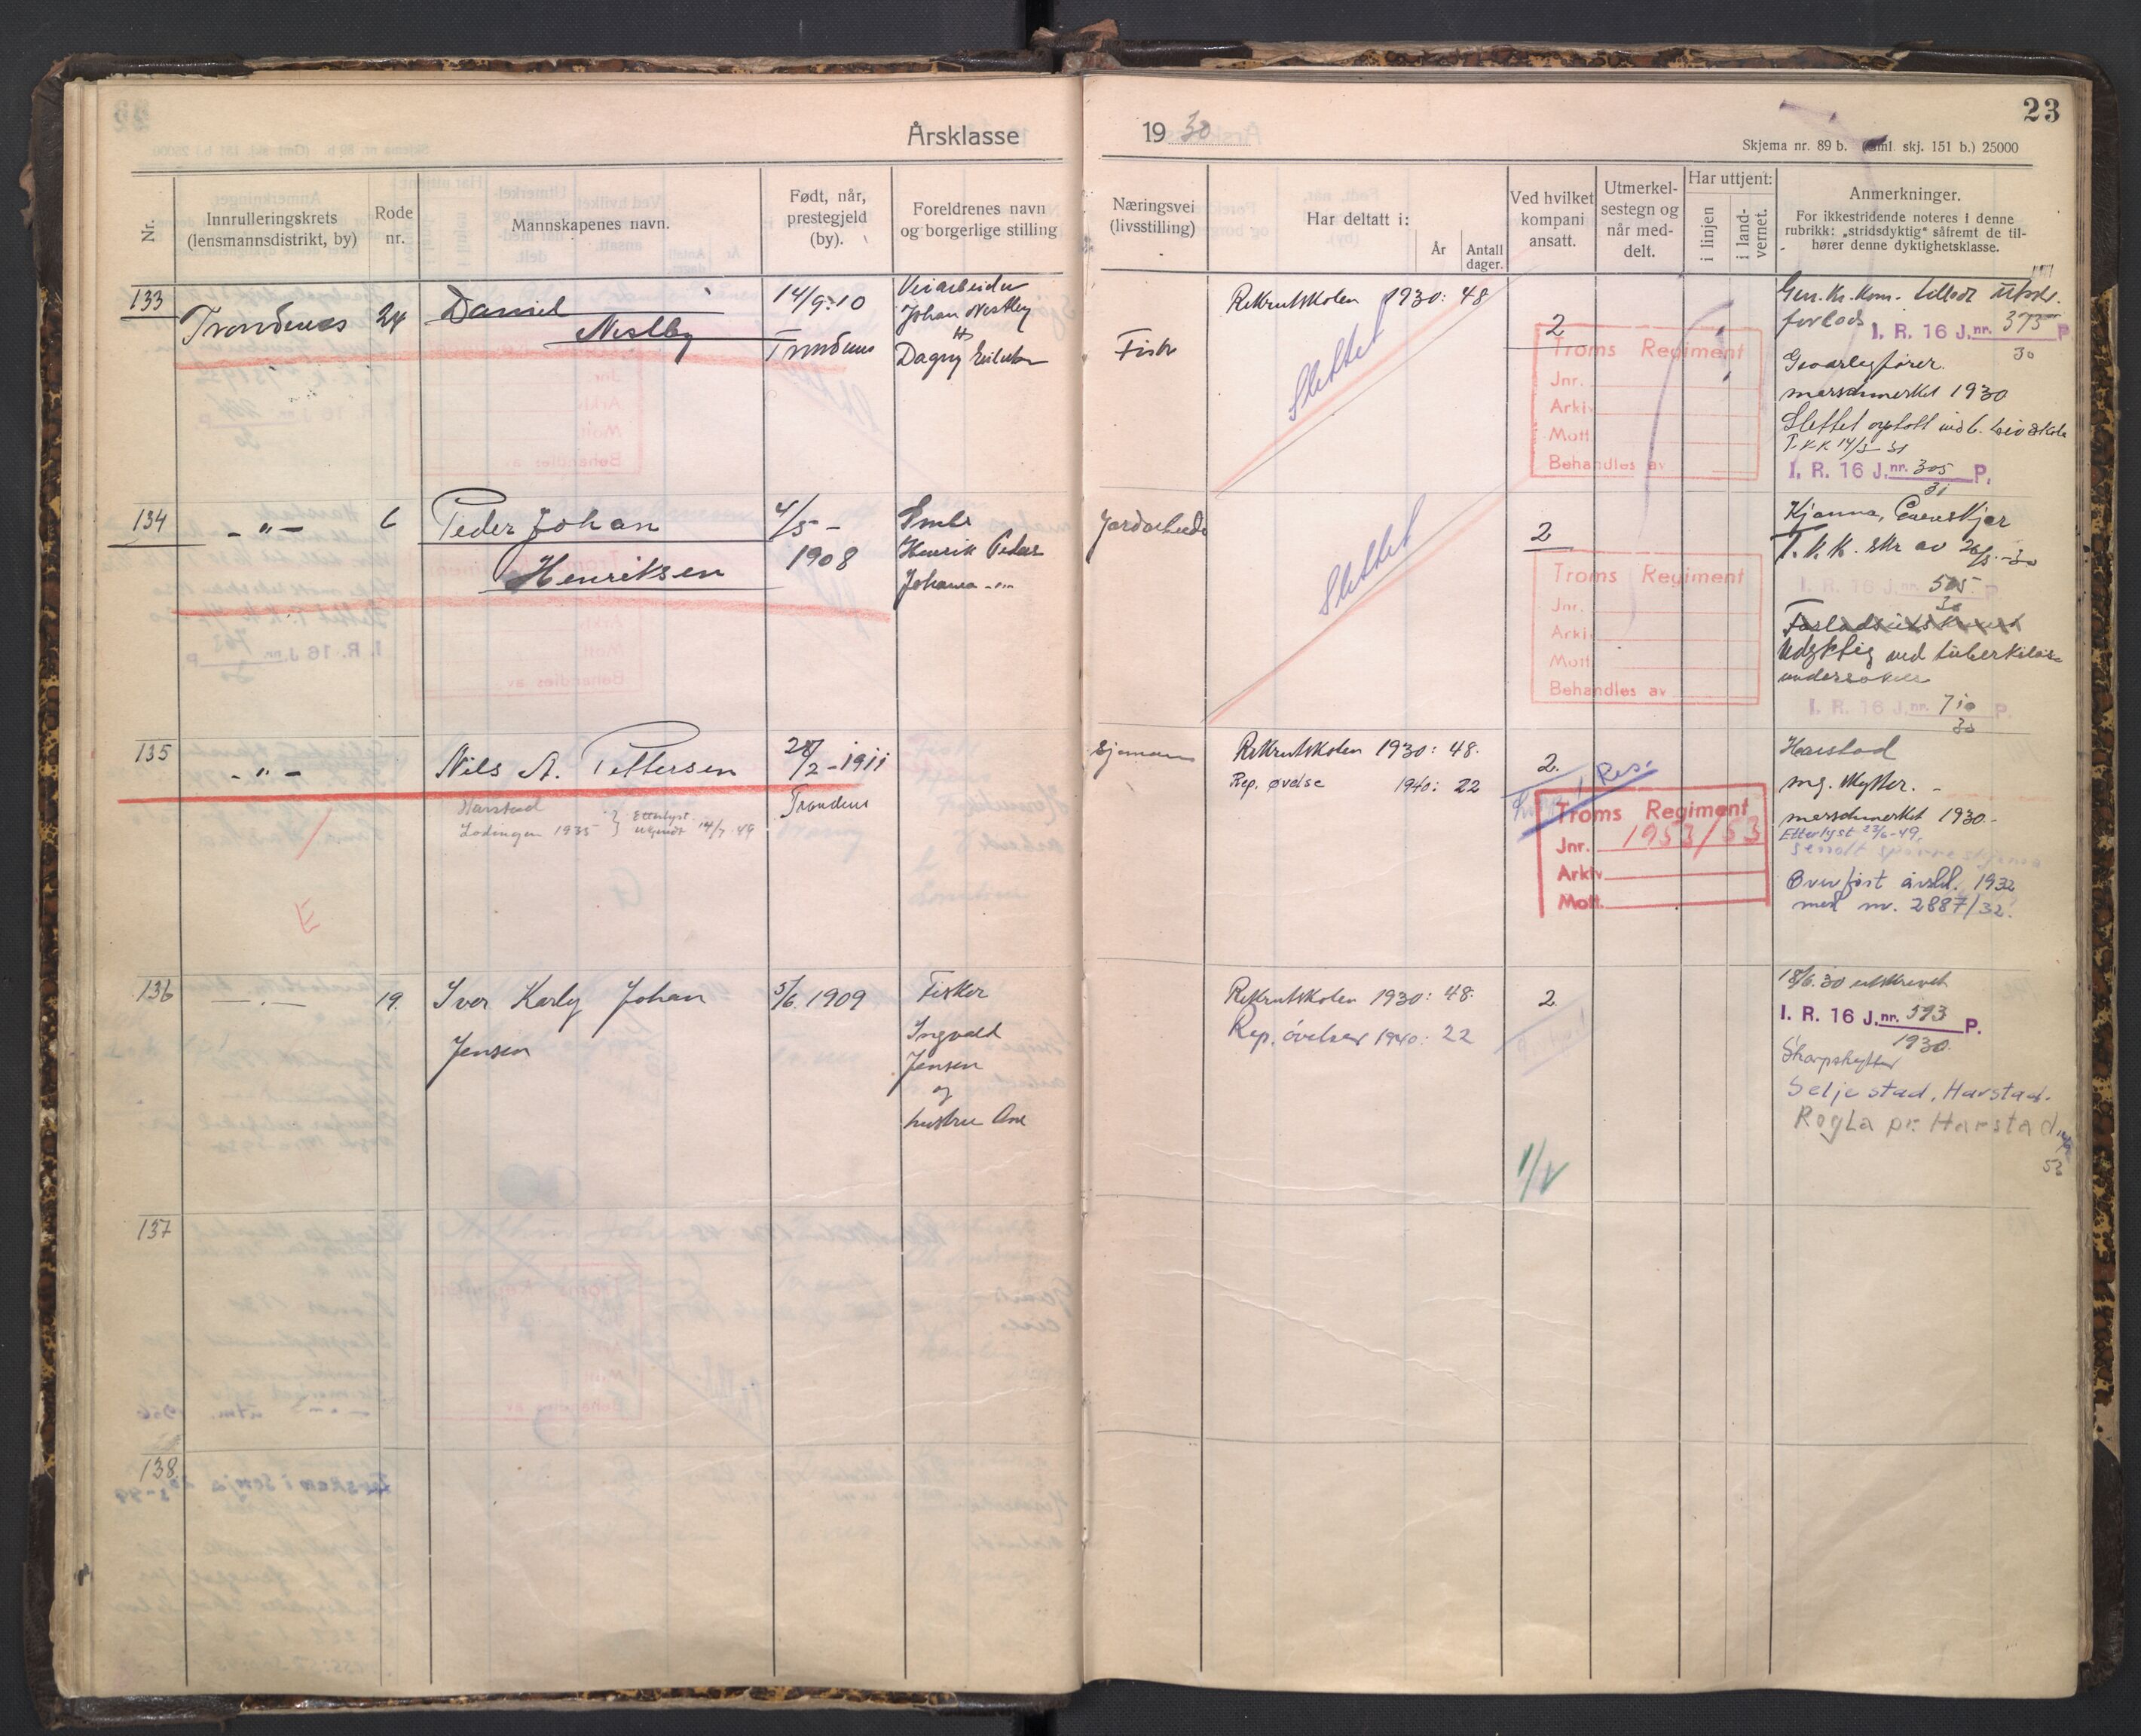 Årsklasse
19 30
23
Skjema nr. 89 b. (Gml. skj. 151 b.) 25000
Nr.
Innrulleringskrets
(lensmannsdistrikt, by)
Rode
nr.
Mannskapenes navn.
Født, når,
prestegjeld
(by).
Foreldrenes navn
og borgerlige stilling
Næringsvei
(livsstilling)
Har deltatt i:
År
Antall
dager.
Ved hvilket
kompani
ansatt.
Utmerkel-
sestegn og
når med-
delt.
Har uttjent:
i linjen
i land-
vernet.
Anmerkninger.
For ikkestridende noteres i denne
rubrikk: „stridsdyktig“ såfremt de til-
hører denne dyktighetsklasse.
133
Trondenes
24
Daniel
Nestby
14/9.10
Trondenes
Veiarbeider
Johan Nestby
Dagny
Fisk
Rekrutskolen 1930: 48
Slettet
2
Troms Regiment
Jnr.
Arkiv
Mott.
Behandles av
Gen. Kr. Kom. tillodt
I. R. 16 J.nr. 375 P
30
Gevarlegfører.
marschmerket 1930
Slettet
T.K.K 14/3 31
I. R. 16 J.nr. 305 P.
31
134
- " -
6
Peder Johan
Henriksen
4/5 -
1908
Smbr
Henrik Peders
Johanna - " -
Jordarbeide
Slettet
2
Troms Regiment
Jnr.
Arkiv
Mott.
Behandles av
Kjønna, Evenskjer
T. K. K. skr av 26/5 - 30
I. R. 16 J.nr. 505 P
30
Udyktig ved tuberkulose
undersøkelse
I. R. 16 J.nr. 710 P.
30
135
- " -
Nils A. Pettersen
Harstad
Lødingen 1935 } Etterlyst 14/7 49
28/2 - 1911
Trondenes
Sjømann
Rekrutskolen 1930: 48.
Rep. øvelse 1940: 22
2.
Res.
Troms Regiment
Jnr. 1953/53
Arkiv
Mott.
Harstad
mg. skytter. -
marschmerket 1930.-
Etterlyst 23/6-49.
sendt spørreskjema
Overført årskl. 1932
med nr. 2887/32.
E
136
- . -
19.
Iver Karly Johan
Jensen
5/6. 1909
Fisker
Ingvald
Jensen
og
hustru Ane
Rekrutskolen 1930: 48.
Rep. øvelser 1940: 22
2
18/6.30 utskrevet
I. R. 16 J.nr. 593 P.
1930.
Skarpskytter
Seljestad, Harstad.
Rogla pr. Harstad
53
137
138